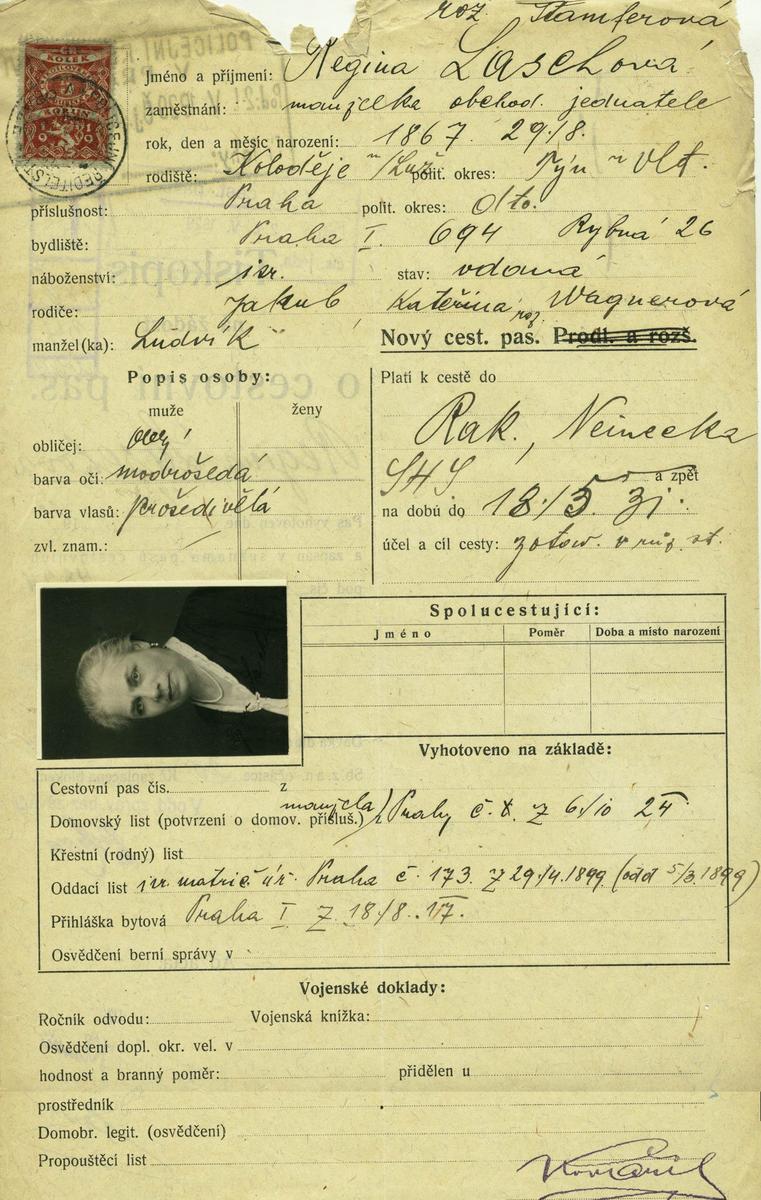 roz. Stamferová
KOLEK
Jméno a příjmení: Regina Laschová
zaměstnání: manželka obchod. jednatele
rok, den a měsíc narození: 1867 29./8.
rodiště: Koloděje n/Luž. polit. okres: Týn n Vlt.
příslušnost: Praha polit. okres: dto.
bydliště: Praha I. 694 Rybná 26
náboženství: isr. stav: vdaná
rodiče: Jakub Kateřina roz. Wagnerová
manžel(ka): Ludvík
Nový cest. pas. Prodl. a rozš.
Popis osoby:
muže ženy
obličej:
barva očí: modrošedá
barva vlasů: prošedivělá
zvl. znam.:
Platí k cestě do
Rak., Německa
SHS a zpět
na dobu do 18./5. 31.
účel a cíl cesty: zotav. v růz. st.
Spolucestující:
Jméno Poměr Doba a místo narození
Vyhotoveno na základě:
Cestovní pas čís. z
Domovský list (potvrzení o domov. přísluš.) manžela) Prahy č. X. z 6/10 24
Křestní (rodný) list
Oddací list isr. matrič. úř. Praha č. 173. z 29./4. 1899 (odd 5/3. 1899)
Přihláška bytová Praha I z 18/8. 17.
Osvědčení berní správy v
Vojenské doklady:
Ročník odvodu: Vojenská knížka:
Osvědčení dopl. okr. vel. v
hodnost a branný poměr: přidělen u
prostředník
Domobr. legit. (osvědčení)
Propouštěcí list